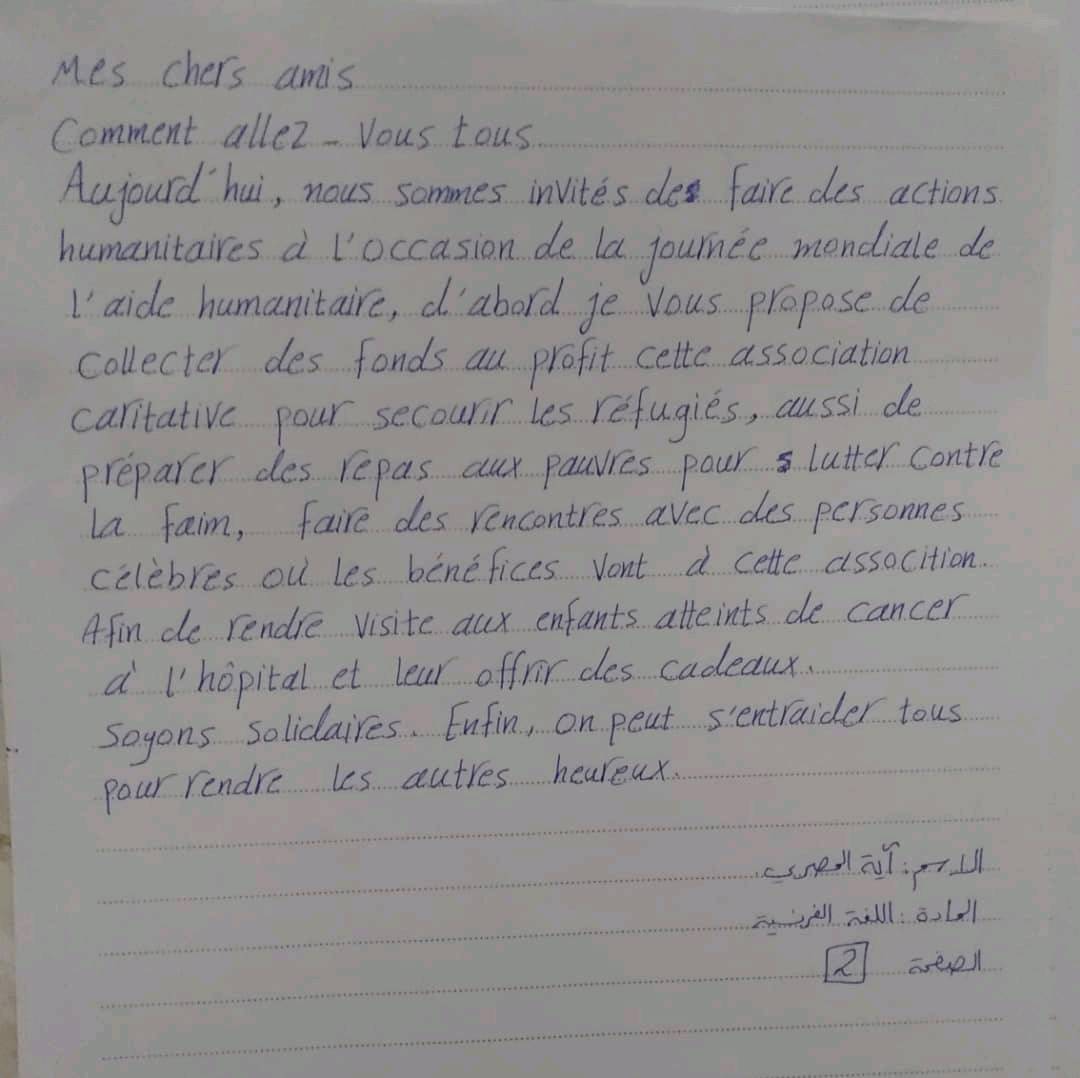 Mes chers amis
Comment allez-vous tous
Aujourd'hui, nous sommes invités de faire des actions
humanitaires à l'occasion de la journée mondiale de
l'aide humanitaire, d'abord je vous propose de
collecter des fonds au profit cette association
caritative pour secourir les réfugiés, aussi de
préparer des repas aux pauvres pour lutter contre
la faim, faire des rencontres avec des personnes
célèbres où les bénéfices vont à cette assocition.
Afin de rendre visite aux enfants atteints de cancer
à l'hôpital et leur offrir des cadeaux.
Soyons solidaires. Enfin, on peut s'entraider tous
pour rendre les autres heureux.
الاسم: آية المصري
المادة: اللغة الفرنسية
الصفحة 2